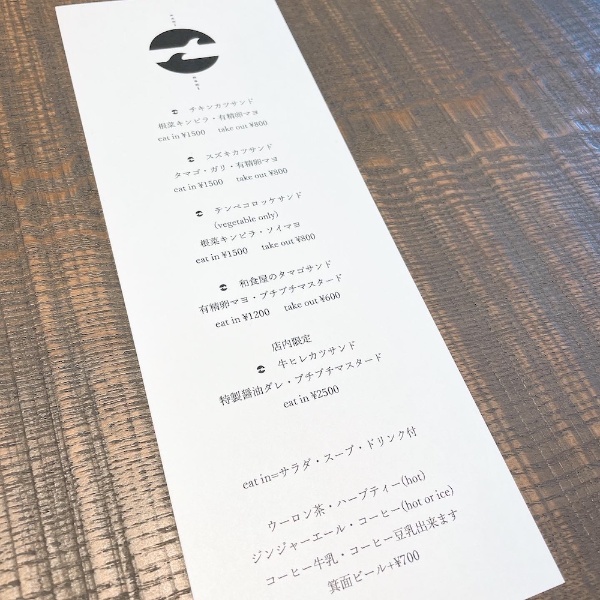 チキンカツサンド
根菜キンピラ・有精卵マヨ
eat in ¥1500 take out ¥800
スズキカツサンド
タマゴ・ガリ・有精卵マヨ
eat in ¥1500 take out ¥800
テンペコロッケサンド
(vegetable only)
根菜キンピラ・ソイマヨ
eat in ¥1500 take out ¥800
和食屋のタマゴサンド
有精卵マヨ・プチプチマスタード
eat in ¥1200 take out ¥600
店内限定
牛ヒレカツサンド
特製醤油ダレ・プチプチマスタード
eat in ¥2500
eat in=サラダ・スープ・ドリンク付
ウーロン茶・ハーブティー(hot)
ジンジャーエール・コーヒー(hot or ice)
コーヒー牛乳・コーヒー豆乳出来ます
箕面ビール+¥700